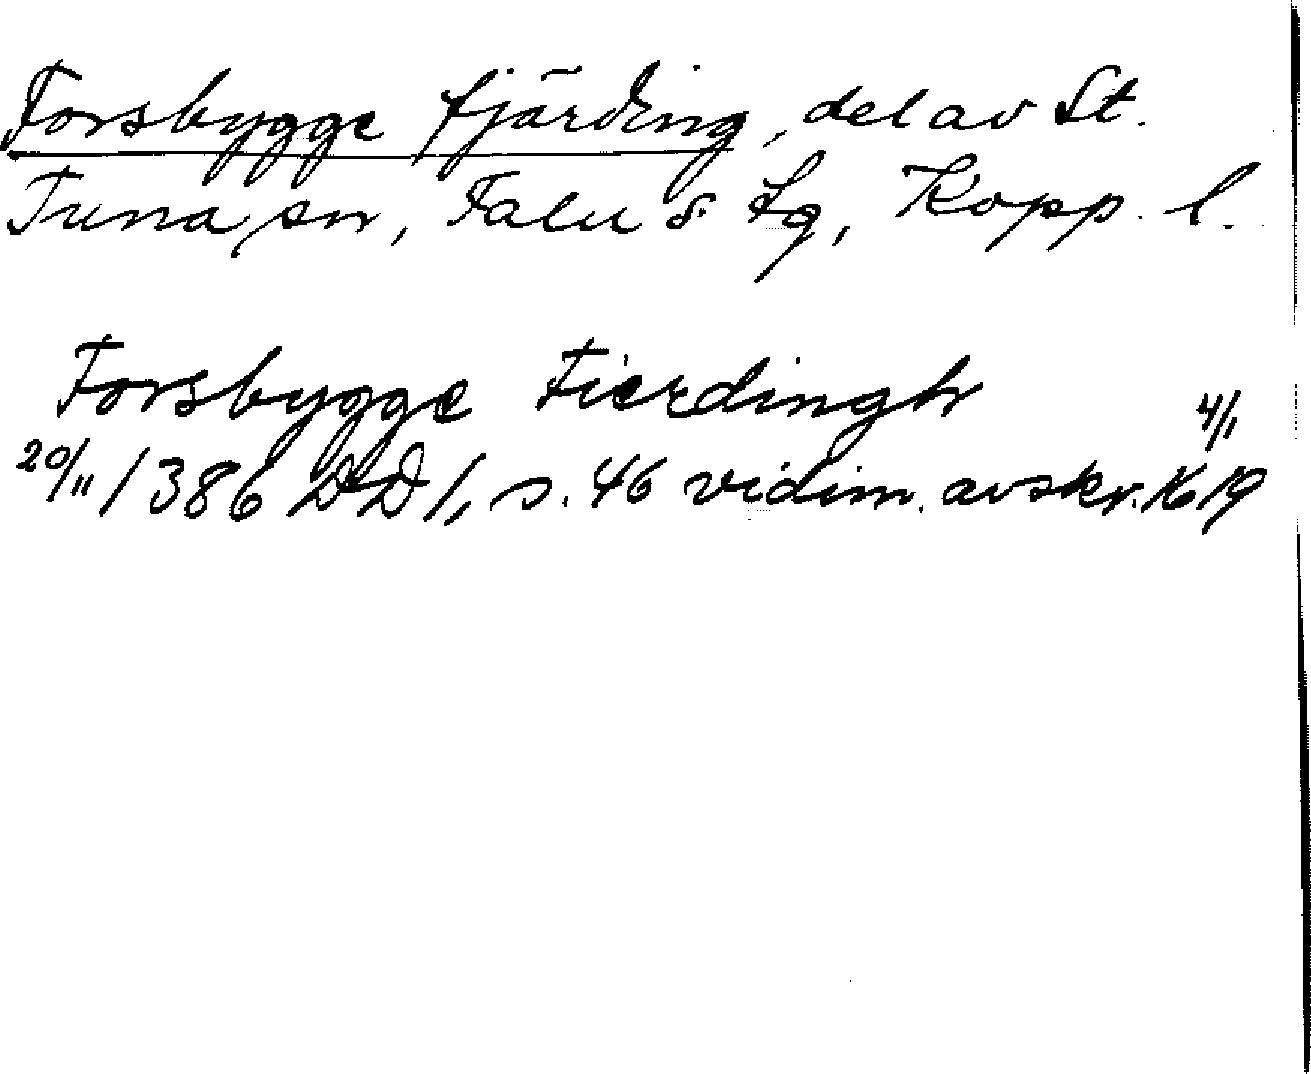 Forsbygge fjärding, del av St.
Tuna sn, Falu s. Lg, Kopp. l.
Forsbygge Fierdingh
20/11 1386 DD 1, s. 46 vidim. avskr. 4/1 1619